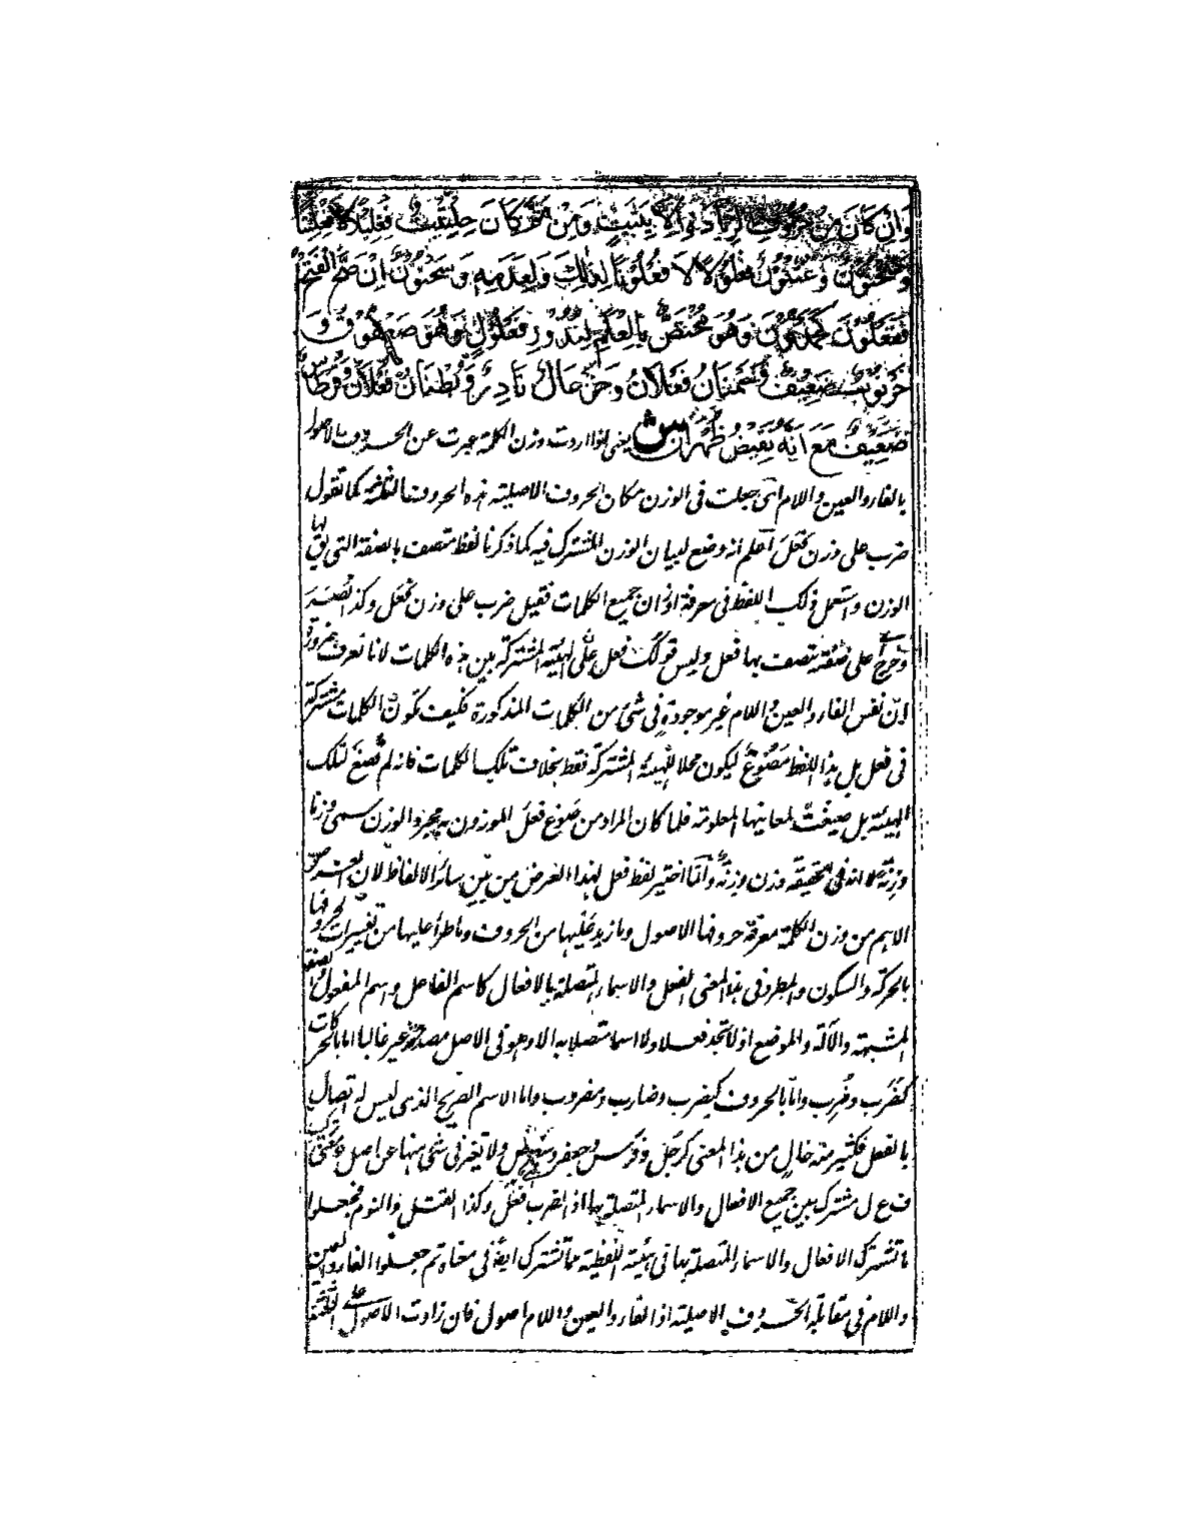 وَاِنْ كَانَ مِنْ حُرُوْفِ الزِّيَادَةِ اِلَّا بِثَبَتٍ وَمِنْ ثَمَّ كَانَ حِلْتِيْتٌ فِعْلِيْلًا لَا فِعْلِيْتًا
وَسُحْنُوْنٌ وَعُثْنُوْنٌ فُعْلُوْلًا لَا فُعْلُوْنًا لِذٰلِكَ وَلِعَدَمِهِ وَسَحْنُوْنٌ اِنْ صَحَّ الْفَتْحُ
فَفَعْلُوْنٌ كَحَمْدُوْنَ وَهُوَ مُخْتَصٌّ بِالْعَلَمِ لِنُدُوْرِ فَعْلُوْلٍ وَهُوَ صَعْفُوْقٌ وَ
خَرْنُوْبٌ ضَعِيْفٌ وَسَمْنَانُ فَعْلَانُ وَخَزْعَالٌ نَادِرٌ وَبُطْنَانٌ فُعْلَانٌ وَقُرْطَاسٌ
ضَعِيْفٌ مَعَ اَنَّهُ نَقِيْضُ ظُهْرَانٍ ش يعنى اذا اردت وزن الكلمة عبرت عن الحروف الاصول
بالفاء والعين واللام اى جعلت فى الوزن مكان الحروف الاصلية هذه الحروف الثلثة كما تقول
ضرب على وزن فَعَلَ اعلم انه وضع لبيان الوزن المشترك فيه كما ذكرنا لفظ متصف بالصفة التى يق لها
الوزن واستعمل ذلك اللفظ فى معرفة اوزان جميع الكلمات فقيل ضرب على وزن فَعَل وكذا نَصَرَ
وخَرَجَ على صفة يتصف بها فعل وليس قولك فعل على الهيئة المشتركة بين هذه الكلمات لانا نعرف ضرورة
انّ نفس الفاء والعين واللام غير موجودة فى شئ من الكلمات المذكورة فكيف تكون الكلمات مشتركة
فى فعل بل هذا اللفظ مَصُوْغٌ ليكون محلا للهيئة المشتركة فقط بخلاف تلك الكلمات فانه لم تُصَغ لتلك
الهيئة بل صيغت لمعانيها المعلومة فلما كان المراد من صَوْغ فَعَلَ الموزون به مجرد الوزن سمى وزنا
وزِنَةً لا انه فى الحقيقة وزن وزِنَةٌ وانما اختير لفظ فعل لهذا الغرض من بين سائر الالفاظ لان الغرض
الاهم من وزن الكلمة معرفة حروفها الاصول وما زيد عليها من الحروف وما طرأ عليها من تغييرات حروفها
بالحركة والسكون والمطرد فى هذا المعنى الفعل والاسماء المتصلة بالافعال كاسم الفاعل واسم المفعول والصفة
المشبهة والآلة والموضع اذ لا تجد فعلا ولا اسما متصلا به الا وهو فى الاصل مصدر غير غالبا اما بالحركات
كضَرَب وضُرِب واما بالحروف كيضرب وضارب ومضروب واما الاسم الصريح الذى ليس له اتصال
بالفعل فكثير منه خالٍ من هذا المعنى كرجل وفرس وجعفر وسفرجل ولا تغير فى شئ منها عن اصل ومعنى تركيب
ف ع ل مشترك بين جميع الافعال والاسماء المتصلة بها اذ الضرب فعل وكذا القتل والنوم فجعلوا
ما تشترك الافعال والاسماء المتصلة بها فى هيئة اللفظية مما تشترك ايضا فى معناه ثم جعلوا الفاء والعين
واللام فى مقابلة الحروف الاصلية اذ الفاء والعين واللام اصول فان زادت الاصول على الثلثة